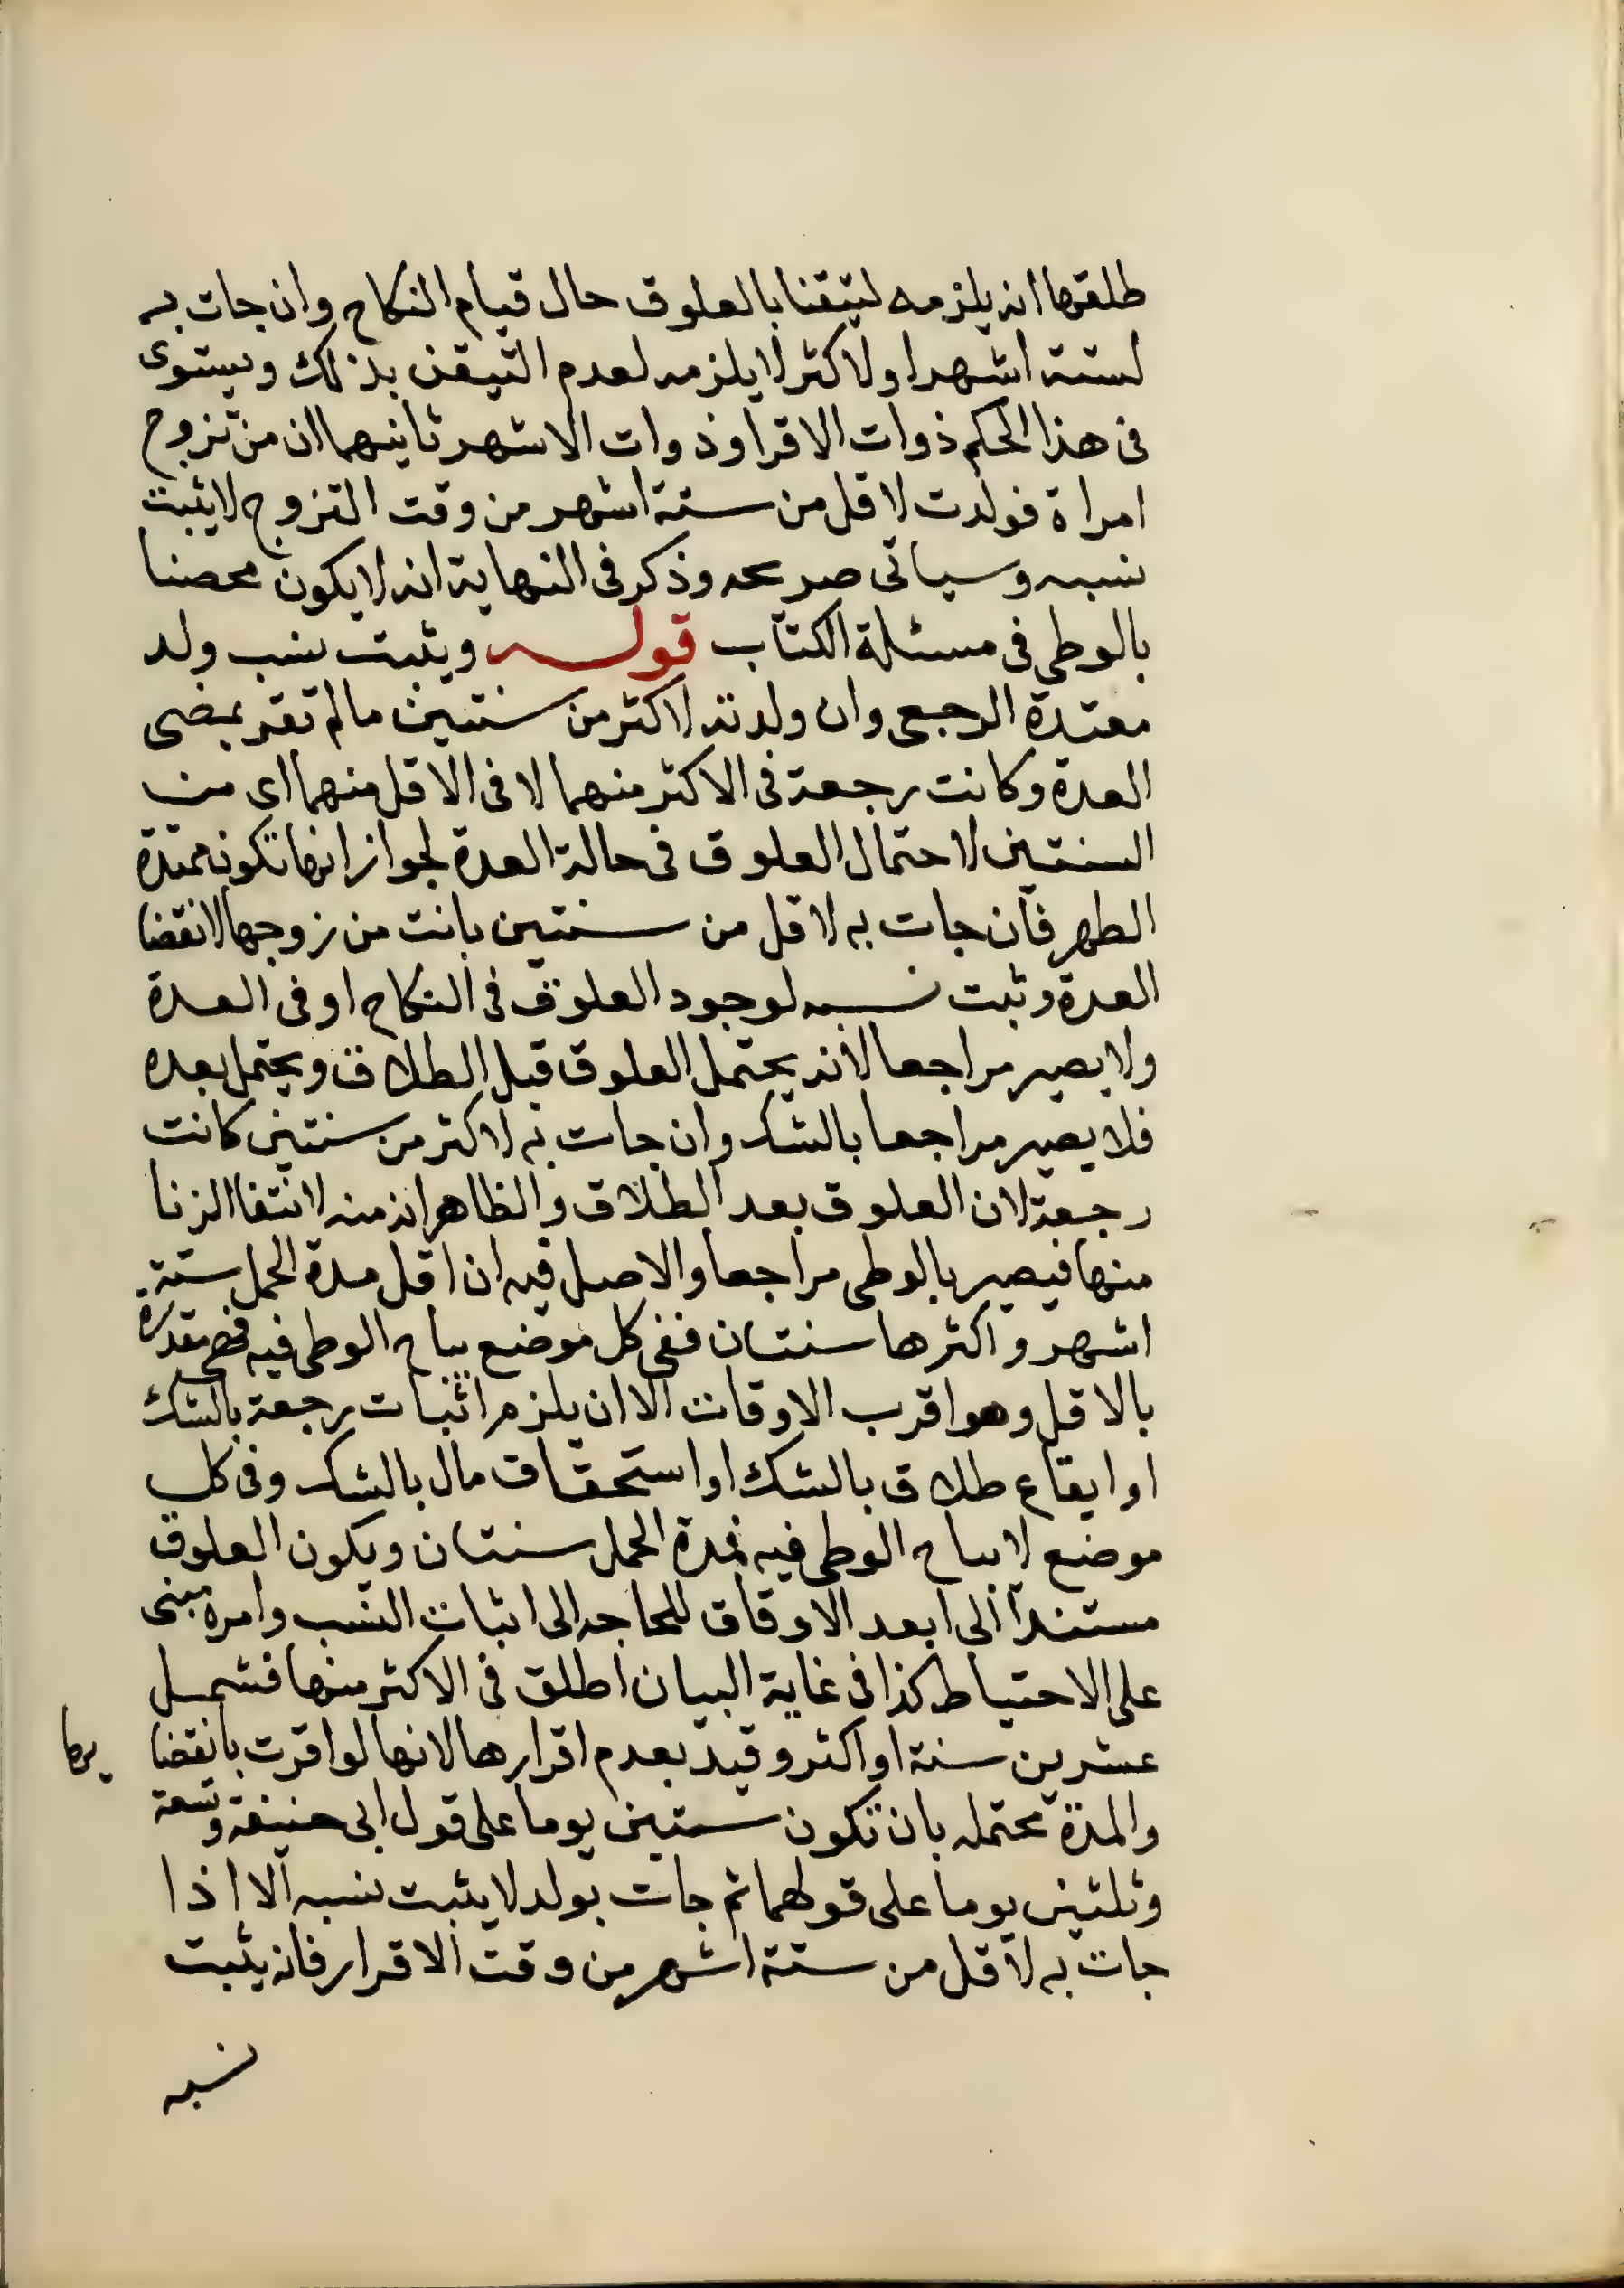 طلقها انه يلزمه ليتقنا بالعلوق حال قيام النكاح وان جات به
لستة اشهر او لاكثر لا يلزمه لعدم التيقن بذلك ويستوى
فى هذا الحكم ذوات الاقرا وذوات الاشهر ثانيهما ان من تزوج
امراة فولدت لاقل من ستة اشهر من وقت التزوج لا يثبت
نسبه وسياتى صريحه وذكر فى النهاية انه لا يكون محصنا
بالوطى فى مسئلة الكتاب قوله ويثبت نسب ولد
معتدة الرجعى وان ولدته لاكثر من سنتين ما لم تقر بمضى
العدة وكانت رجعة فى الاكثر منهما لا فى الاقل منهما اى من
السنتين لاحتمال العلوق فى حالة العدة لجواز انها تكون ممتدة
الطهر فان جات به لاقل من سنتين بانت من زوجها لانقضا
العدة وثبت نسبه لوجود العلوق فى النكاح او فى العدة
ولا يصير مراجعا لانه يحتمل العلوق قبل الطلاق ويحتمل بعده
فلا يصير مراجعا بالشك وان جات به لاكثر من سنتين كانت
رجعة لان العلوق بعد الطلاق والظاهر انه منه لانتفا الزنا
منها فيصير بالوطى مراجعا والاصل فيه ان اقل مدة الحمل ستة
اشهر واكثرها سنتان ففى كل موضع يباح الوطى فيه فهى مقدرة
بالاقل وهو اقرب الاوقات الا ان يلزم اثبات رجعة بالشك
او ايقاع طلاق بالشك او استحقاق مال بالشك وفى كل
موضع لا يباح الوطى فيه فمدة الحمل سنتان ويكون العلوق
مستندا الى ابعد الاوقات للحاجه الى اثبات النسب وامره مبنى
على الاحتياط كذا فى غاية البيان اطلق فى الاكثر منها فشمل
عشرين سنة او اكثر وقيد بعدم اقرارها لانها لو اقرت بانقضا
يها
والمدة محتمله بان تكون ستين يوما على قول ابى حنيفة وتسعة
وثلثين يوما على قولهما ثم جات بولد لا يثبت نسبه الا اذا
جات به لاقل من ستة اشهر من وقت الاقرار فانه يثبت
نسبه